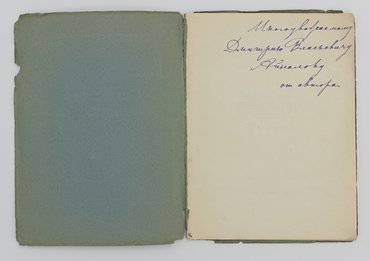 Многоуважаемому
Дмитрию Власьевичу
Айналову
от автора.